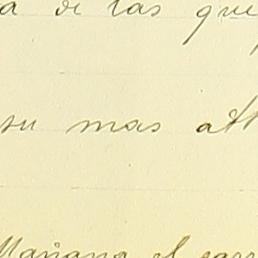 a de las que
su mas att
Mañana el carr